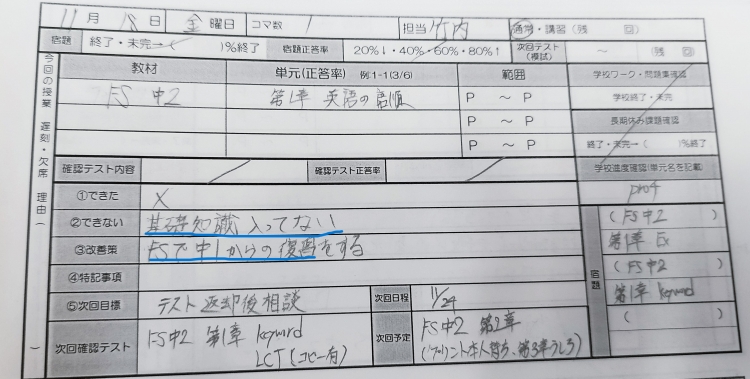 11月18日 金曜日 コマ数 1 担当 竹内 通常・講習(残 回)
宿題 終了・未完→( )%終了 宿題正答率 20%↓・40%・60%・80%↑ 次回テスト(模試) ～ (残 回)
今回の授業 遅刻・欠席 理由( )
教材 単元(正答率) 例1-1(3/6) 範囲 学校ワーク・問題集確認
FS 中2 第1章 英語の語順 P ～ P 学校終了・未完
P ～ P 長期休み課題確認
P ～ P 終了・未完→( )%終了
確認テスト内容 確認テスト正答率 学校進度確認(単元名を記載)
①できた ×
②できない 基礎知識入ってない
③改善策 FSで中1からの復習をする
④特記事項
⑤次回目標 テスト返却後相談 次回日程 11/24
次回確認テスト FS中2 第1章 keyword
LCT(コピー有)
次回予定 FS中2 第2章
(プリント本人持ち、第3章うしろ)
宿題
(FS中2 )
第1章 Ex
(FS中2 )
第1章 keyword
( )